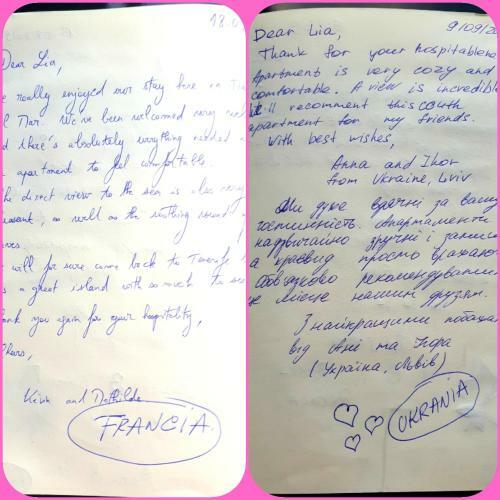 18.0
Dear Lia,
e really enjoyed our stay here on
l Mar. We've been welcomed very
d there's absolutely everything needed
apartment to feel comfortable.
he direct view to the sea is also very
easant, as well as the soothing sound
aves.
will for sure come back to Tenerife
s a great island with so much to see
hank you again for your hospitality,
Cheers,
Kevin and Mathilde
FRANCIA
9/09/20
Dear Lia,
Thank for your hospitablene
Apartment is very cozy and
comfortable. A view is incredible
I'll recomment this
apartment for my friends.
With best wishes,
Anna and Ihor
from Ukraine, Lviv
Ми дуже вдячні за вашу
гостинність. Апартаменти
надзвичайно зручні і
а краєвид просто вражаю
Обов'язково рекомендувати
це місце нашим друзям.
З найкращими побажа
від Ані та Ігора
(Україна, Львів)
UKRANIA